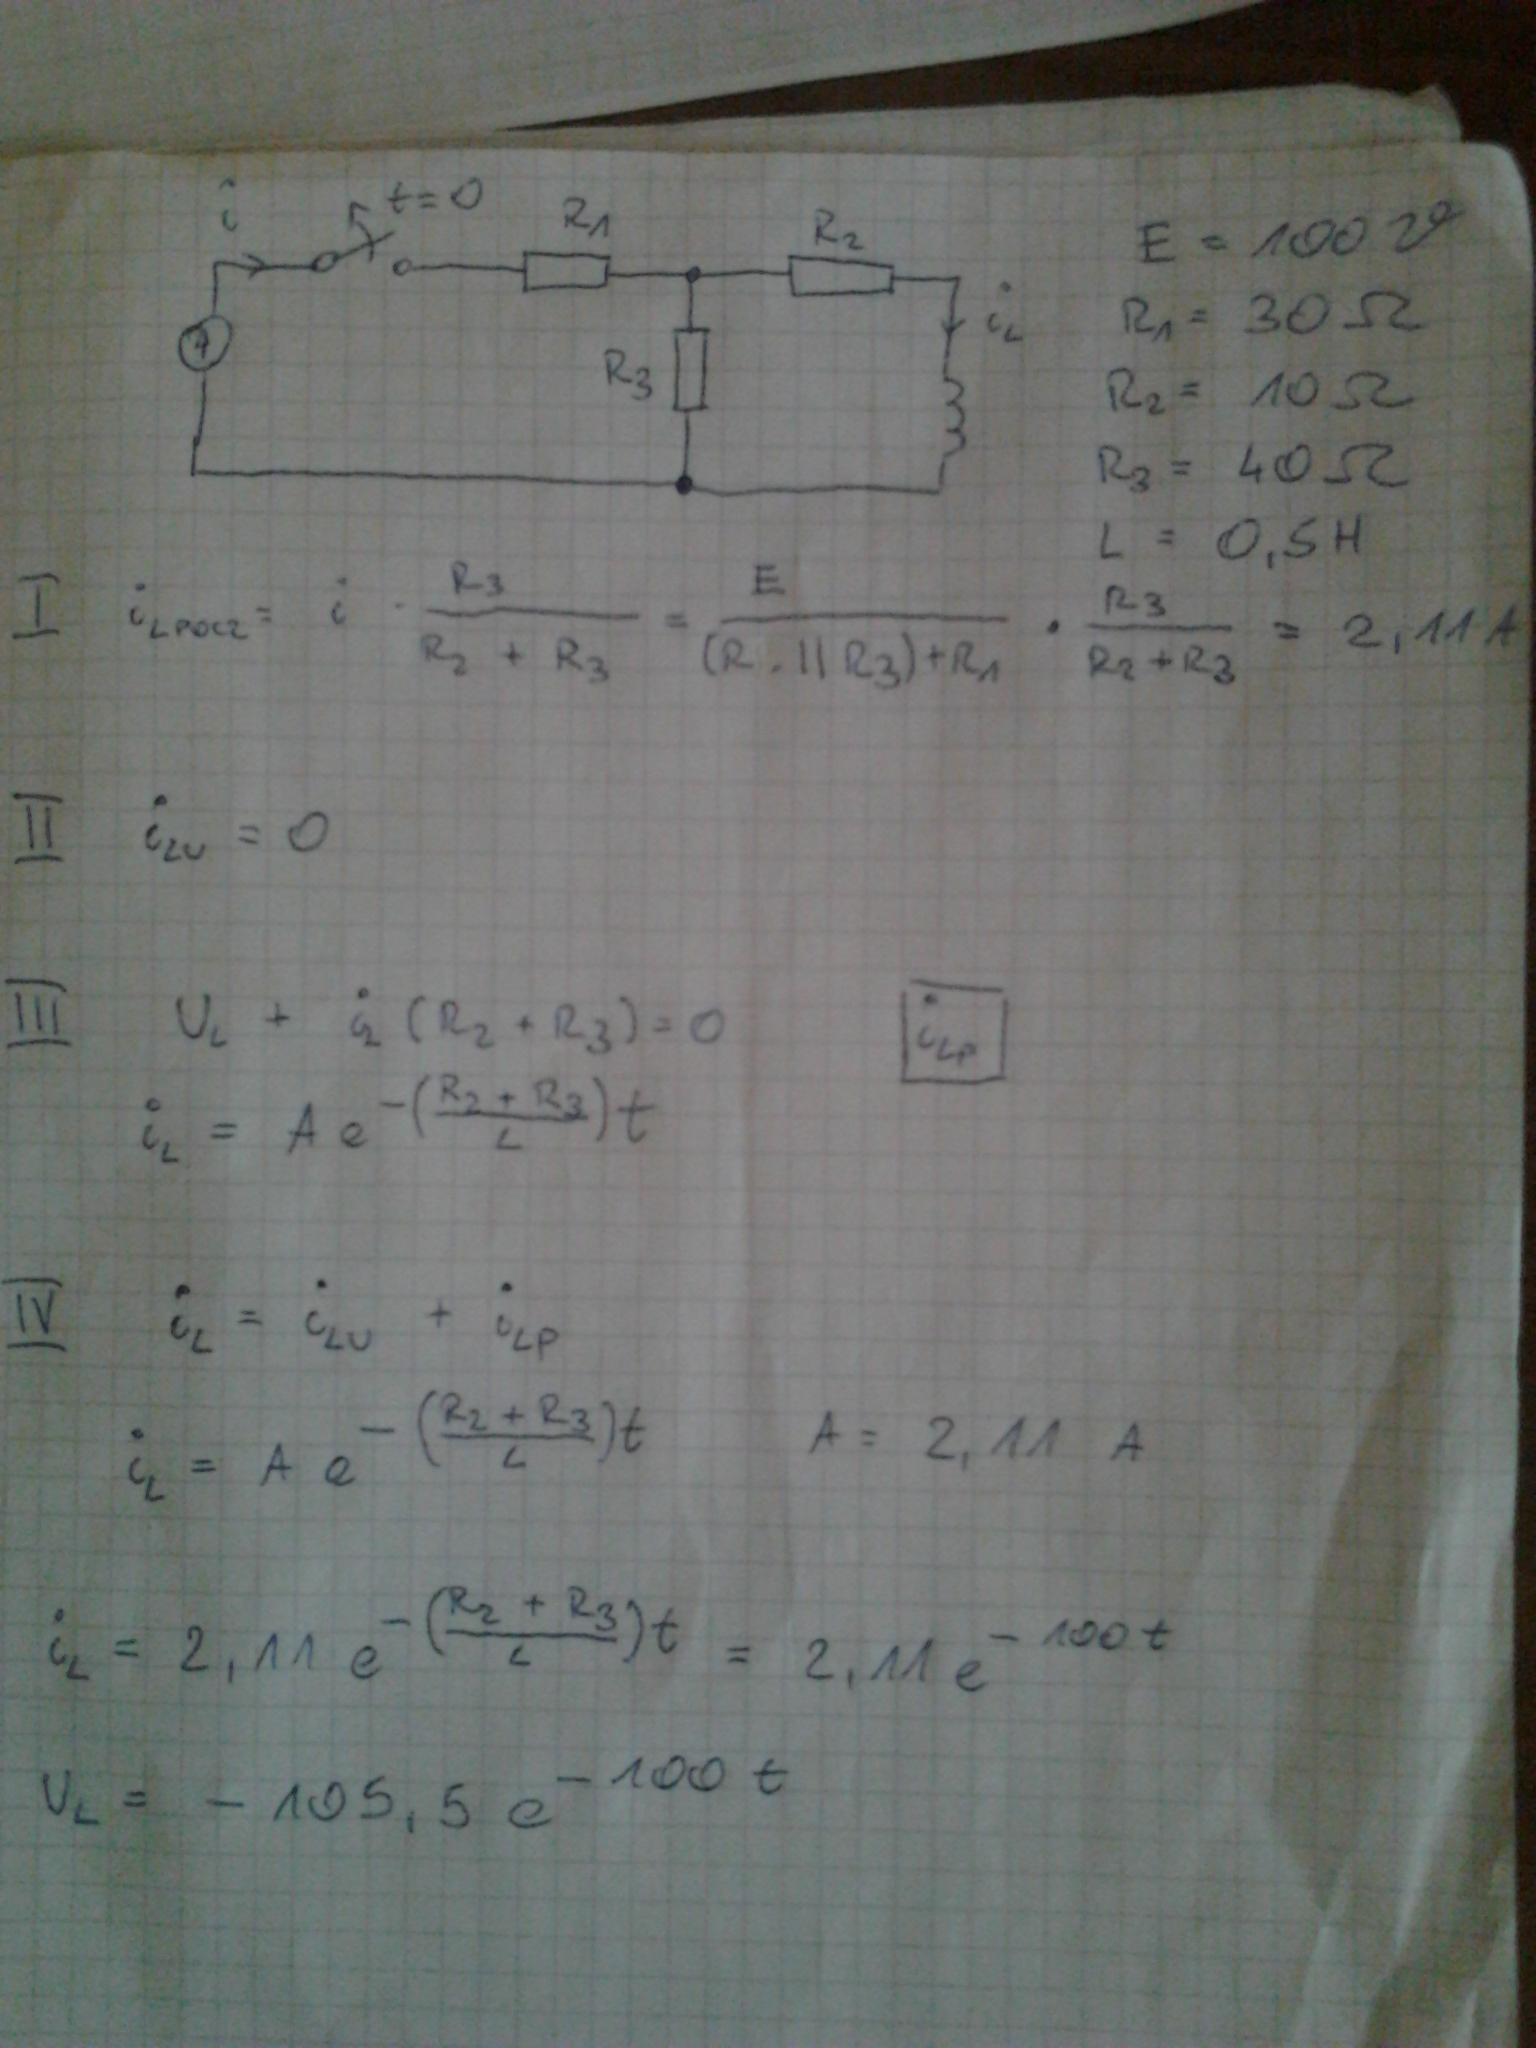 i t=0 R1 R2 E = 100 V
R3 iL R1 = 30 Ω
R2 = 10 Ω
R3 = 40 Ω
L = 0,5H
I iLPOCZ = i · R3 / (R2 + R3) = E / ((R2 || R3) + R1) · R3 / (R2 + R3) = 2,11 A
II iLU = 0
III UL + iL (R2 + R3) = 0 iLP
iL = A e^-((R2 + R3)/L) t
IV iL = iLU + iLP
iL = A e^-((R2 + R3)/L) t A = 2,11 A
iL = 2,11 e^-((R2 + R3)/L) t = 2,11 e^-100 t
UL = - 105,5 e^-100 t